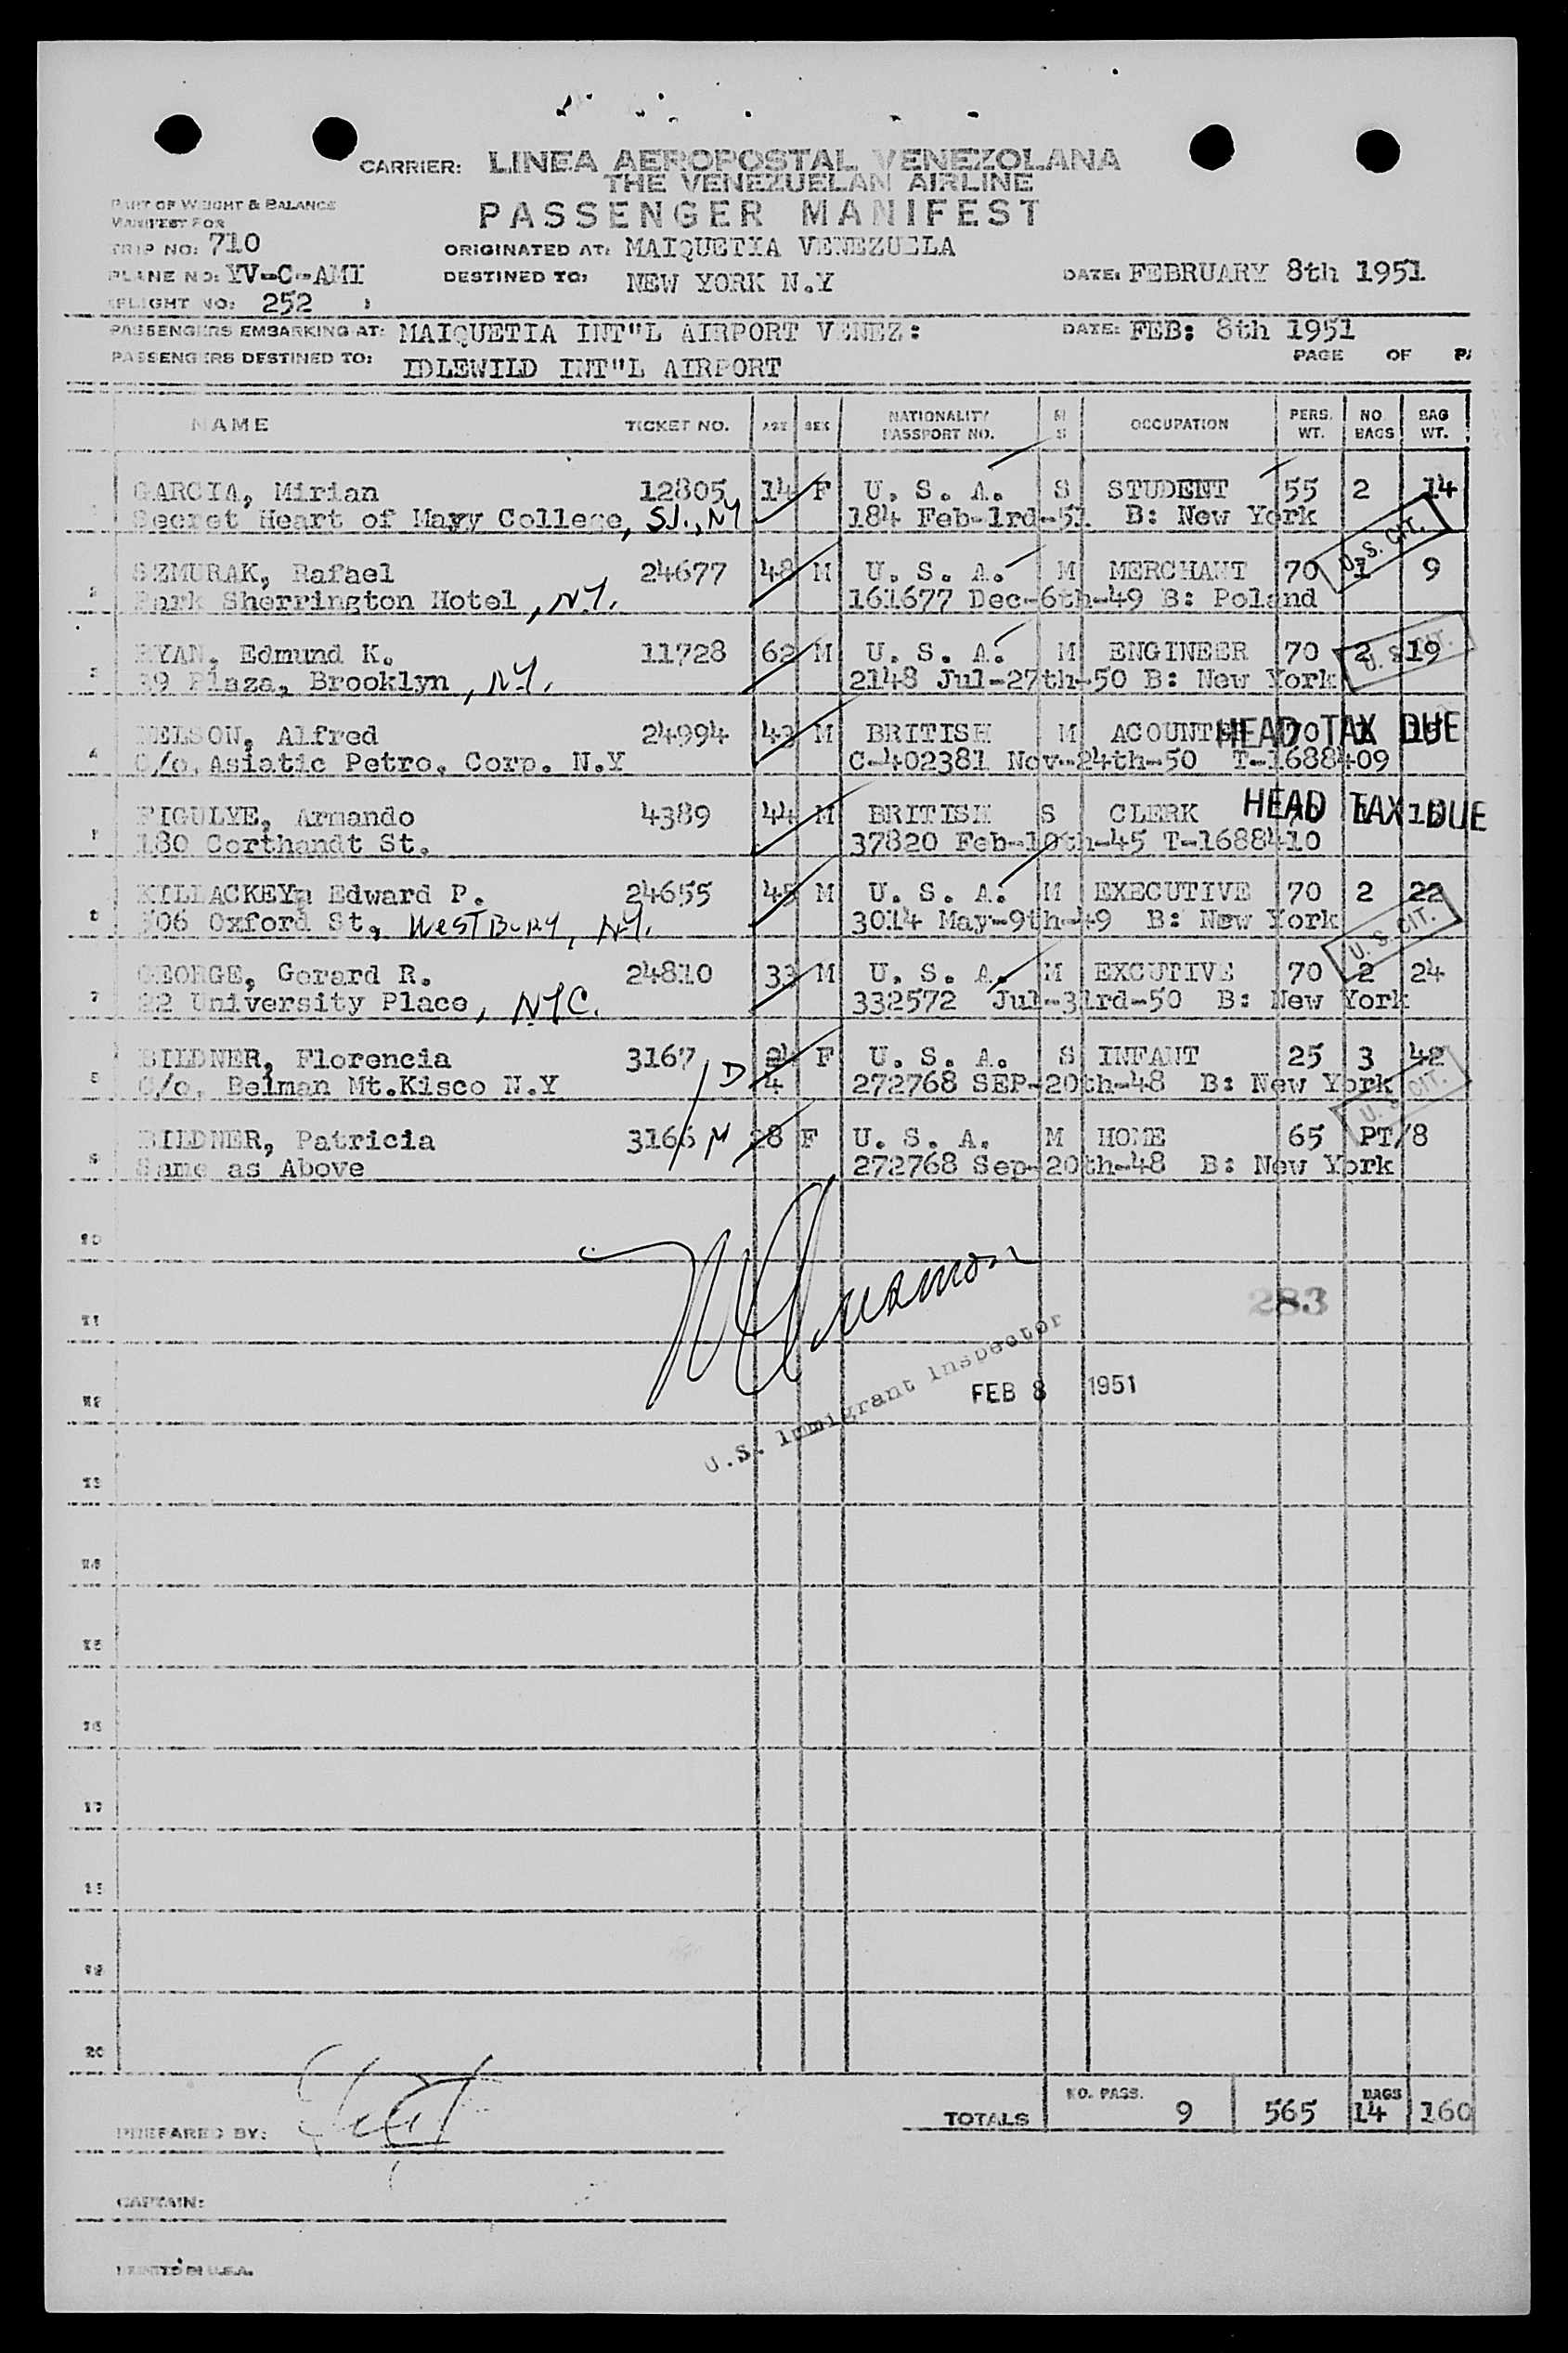 CARRIER: LINEA AEROPOSTAL VENEZOLANA
THE VENEZUELAN AIRLINE
PART OF WEIGHT & BALANCE
MANIFEST FOR
PASSENGER MANIFEST
TRIP NO: 710
ORIGINATED AT: MAIQUETIA VENEZUELA
PLANE NO: YV-C-AMI
DESTINED TO: NEW YORK N.Y
DATE: FEBRUARY 8th 1951
FLIGHT NO: 252
PASSENGERS EMBARKING AT: MAIQUETIA INT"L AIRPORT VENEZ: DATE: FEB: 8th 1951
PASSENGERS DESTINED TO: IDLEWILD INT"L AIRPORT PAGE OF
NAME TICKET NO. AGE SEX NATIONALITY PASSPORT NO. M S OCCUPATION PERS. WT. NO BAGS BAG WT.
1 GARCIA, Mirian 12805 14 F U. S. A. S STUDENT 55 2 14
Secret Heart of Mayy College, SI., NY 184 Feb-1rd-51 B: New York
U.S. CIT.
2 SZMURAK, Rafael 24677 48 M U. S. A. M MERCHANT 70 1 9
Park Sherrington Hotel, N.Y. 161677 Dec-6th-49 B: Poland
3 RYAN, Edmund K. 11728 62 M U. S. A. M ENGINEER 70 2 19
U.S. CIT.
39 Plaza, Brooklyn, N.Y. 2148 Jul-27th-50 B: New York
4 NELSON, Alfred 24994 43 M BRITISH M ACOUNT 70
HEAD TAX DUE
C/o. Asiatic Petro. Corp. N.Y C-402381 Nov-24th-50 T-1688409
5 FIGULYE, Armando 4389 44 M BRITISH S CLERK
HEAD TAX DUE
180 Corthandt St. 37820 Feb-10th-45 T-1688410
6 KILLACKEY, Edward P. 24655 45 M U. S. A. M EXECUTIVE 70 2 22
506 Oxford St, WestBury, N.Y. 3014 May-9th-49 B: New York
U.S. CIT.
7 GEORGE, Gerard R. 24810 33 M U. S. A. M EXCUTIVE 70 2 24
22 University Place, NYC. 332572 Jul-31rd-50 B: New York
8 BILDNER, Florencia 3167 D 24 F U. S. A. S INFANT 25 3 42
C/o. Belman Mt.Kisco N.Y 4 272768 SEP-20th-48 B: New York
U.S. CIT.
9 BILDNER, Patricia 3166 M 28 F U. S. A. M HOME 65 PT/8
Same as Above 272768 Sep-20th-48 B: New York
10
11 283
U.S. Immigrant Inspector
12 FEB 8 1951
13
14
15
16
17
18
19
20
TOTALS NO. PASS. 9 565 BAGS 14 160
PREPARED BY:
CAPTAIN:
PRINTED IN U.S.A.